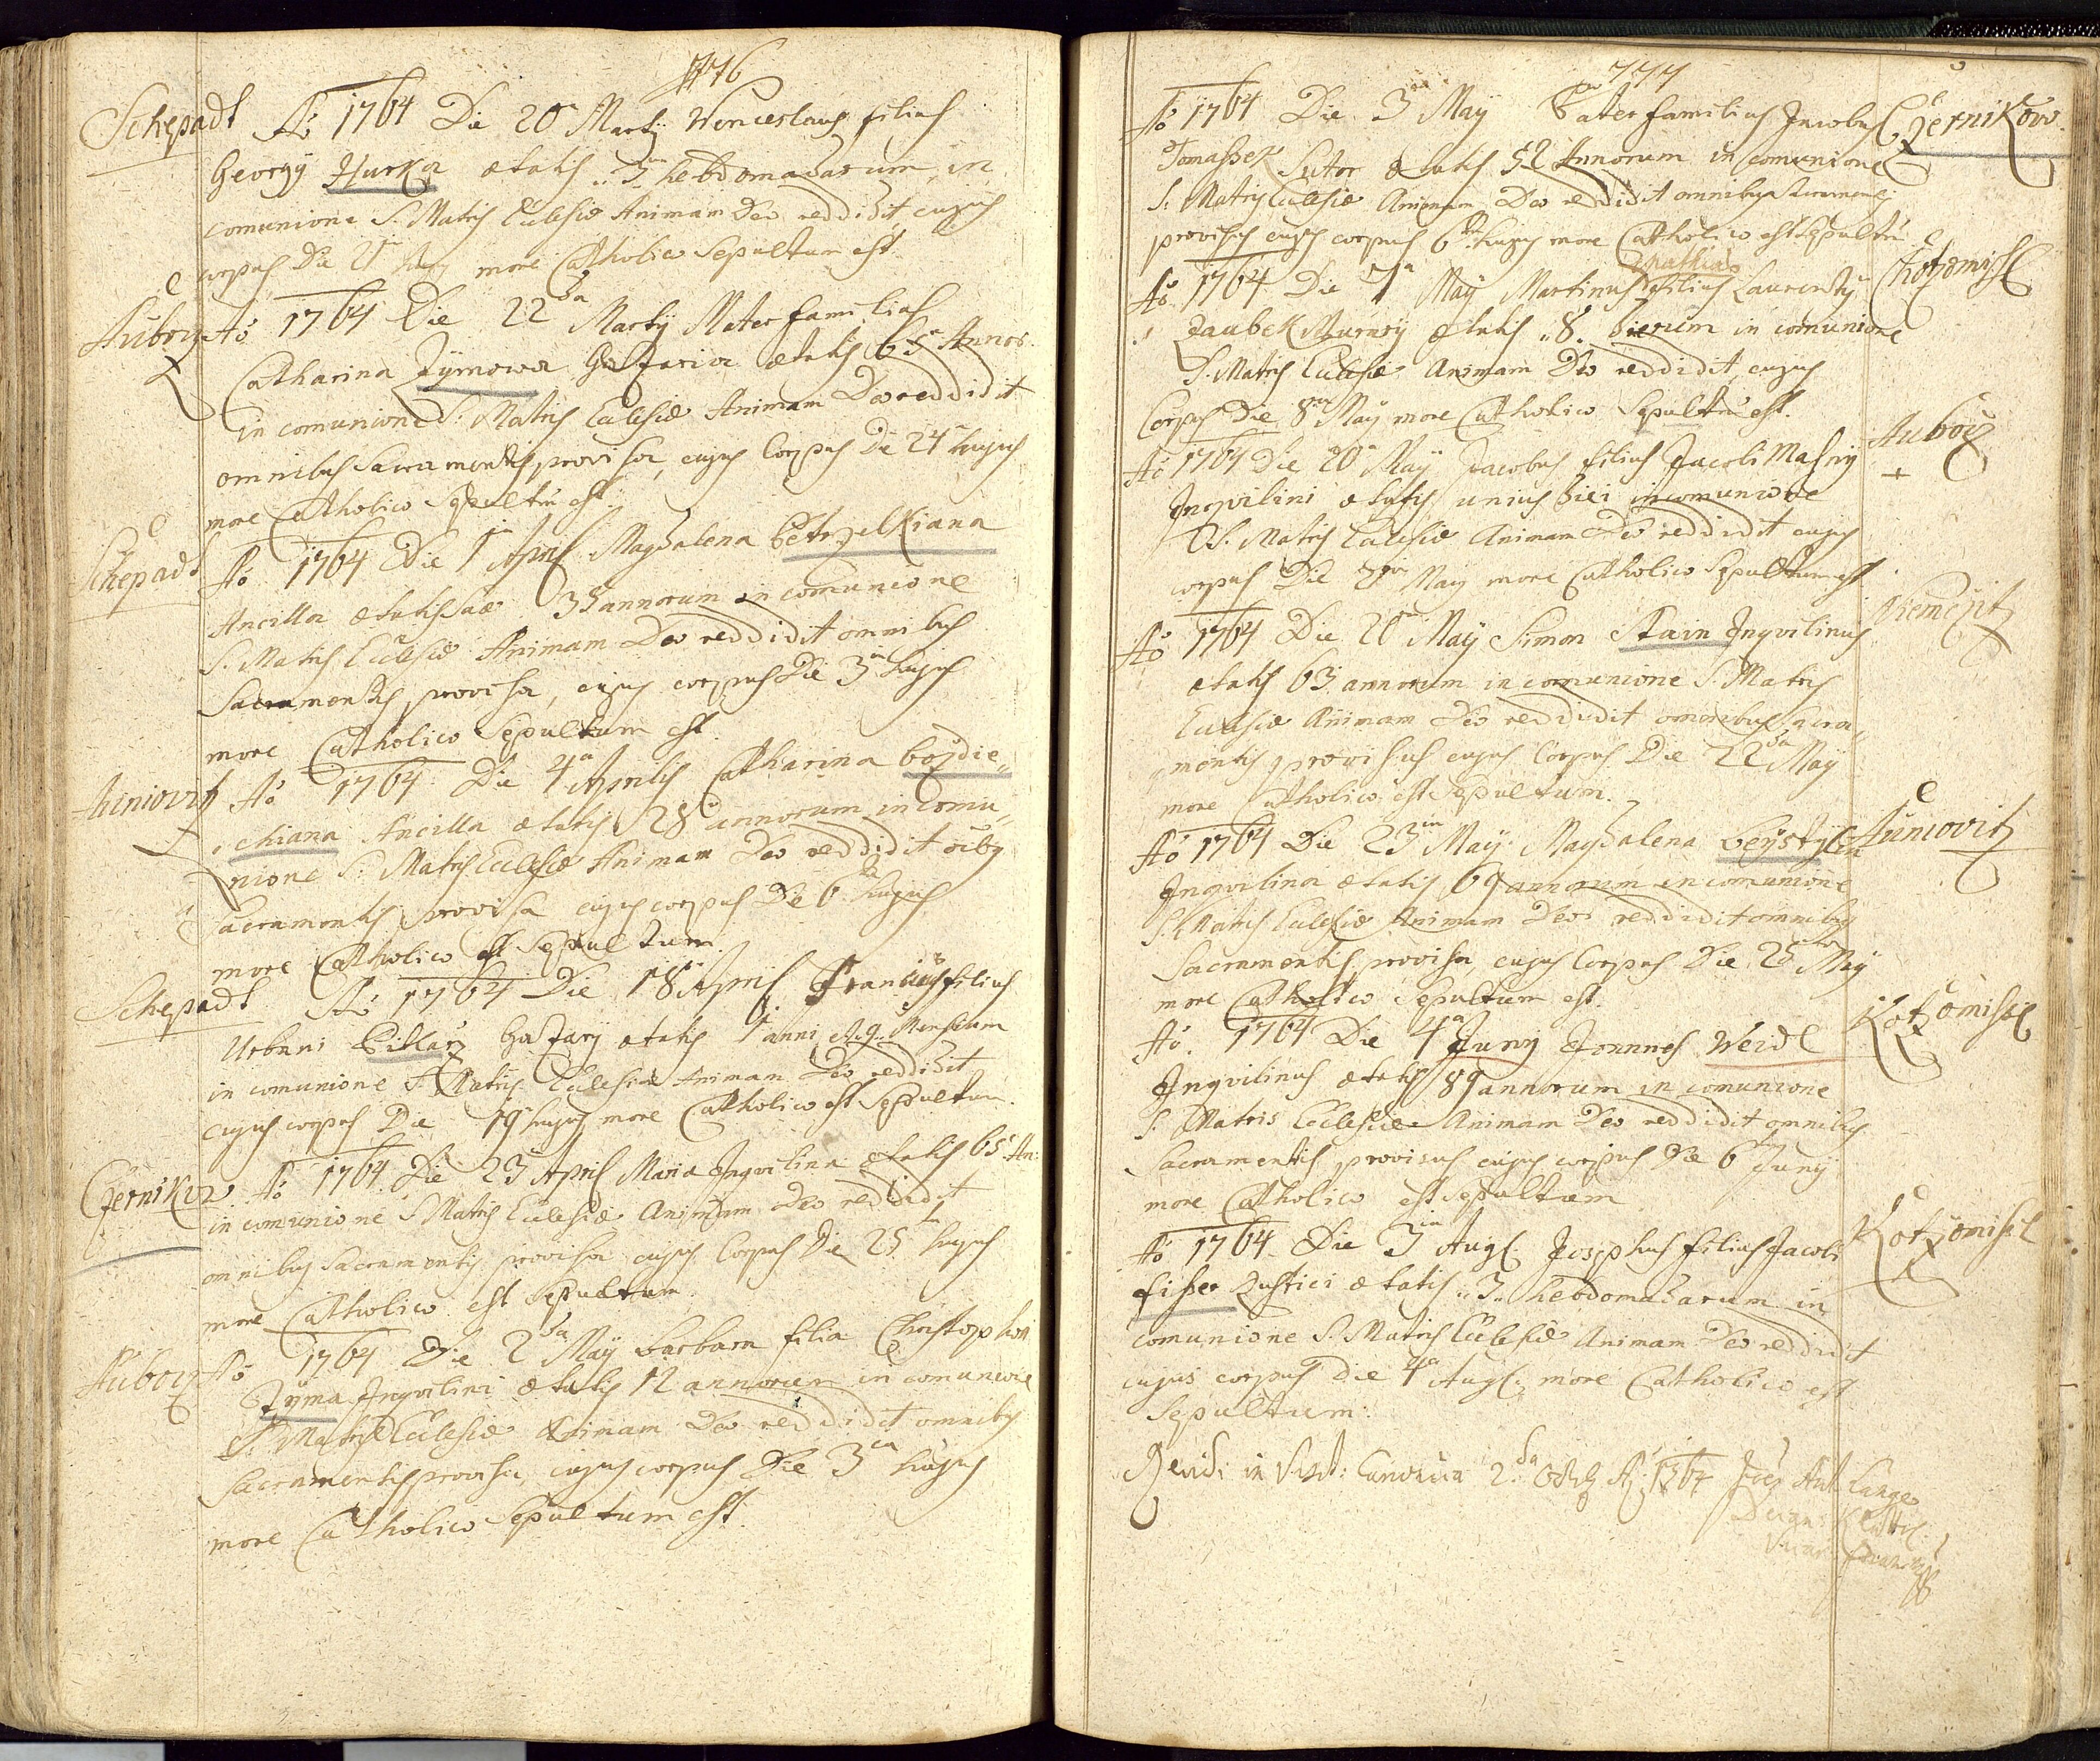 776
Schepadl Aō 1764 Die 20 Martÿ Wenceslaus filius
Georgÿ Hurka ætatis „3 hebdomadarum, in
comunione S. Matris Ecclesiæ Animam Deo reddidit cujus
corpus Die 21 hujus more Catholico Sepultum est.
Auborz Aō 1764 Die 22da Martÿ Mater familias
Catharina Zÿmowa ætatis 65 Annor:
in comunione S. Matris Ecclesiæ Animam Deo reddidit
omnibus Sacramentis provisa, cujus Corpus Die 24 hujus
more Catholico Sepultū est.
Schepadl Aō 1764 Die 1 April Magdalena betrzelkiana
Ancilla ætatis suæ 35 annorum in comunione
S. Matris Ecclesiæ Animam Deo reddidit omnibus
Sacramentis provisa, cujus corpus Die 3 hujus
more Catholico Sepultum est.
Auniovitz Aō 1764 Die 4a Aprilis Catharina bozdie„
„chiana Ancilla ætatis 28 annorum in comu„
nione S. Matris Ecclesiæ Animam Deo reddidit oibq
Sacramentis provisa cujus corpus Die 6 hujus
more Catholico est Sepultum.
Schepadl Aō 1764 Die 18 April Franciscus filius
Urbani ætatis 1 anni et 9 Mensium
in comunione S. Matris Ecclesiæ Animam Deo reddidit
cujus corpus Die 19 hujus more Catholico est Sepultum.
Czernikov Aō 1764 Die 23 April Maria Inqvilina ætatis 65 An:
in comunione S Matris Ecclesiæ Animam Deo reddidit
omnibus Sacramentis provisa cujus Corpus Die 25 hujus
more Catholico est Sepultum.
Auborz Aō 1764 Die 2da Maÿ barbara filia Christophori
Zÿma Inqvilini ætatis 12 annorum in comunione
S. Matris Ecclesiæ Animam Deo reddidit omnibus
Sacramentis provisa, cujus corpus Die 3 hujus
more Catholico Sepultum est.
777
Aō 1764 Die 3 Maÿ Pater familias Jacobus Czernikow.
Tomassek Sutor ætatis 52 Annorum in comunione
S. Matris Ecclesiæ Animam Deo reddidit omnibus Sacramentis
provisus cujus corpus 6 hujus more Catholico est Sepultū
Mathias
Aō 1764 Die 7a Maÿ Martinus filius Laurentÿ Chotzomischl
Zaubek Murarÿ ætatis „8„ dierum in comunione
S. Matris Ecclesiæ Animam Deo reddidit, cujus
Corpus Die 8 Maÿ more Catholico Sepultū est.
Aō 1764 Die 20 Maÿ Jacobus filius Jacobi Masnÿ Auborz
Inqvilini ætatis unius diei in comunione
S. Matris Ecclesiæ Animam Deo reddidit cujus
corpus Die 21 Maÿ more Catholico Sepultum est
Aō 1764 Die 20 Maÿ Simon Stain Inqvilinus Niemczitz
ætatis 63 annorum in comunione S. Matris
Ecclesiæ Animam Deo reddidit omnibus sacra„
„mentis provisus cujus Corpus Die 22da Maÿ
more Catholico est Sepultum.
Aō 1764 Die 23 Maÿ Magdalena Auniovitz
Inqvilina ætatis 69 annorum in comunione
S. Matris Ecclesiæ Animam Deo reddidit omnibus
Sacramentis provisa, cujus Corpus Die 25 Maÿ
more Catholico Sepultum est.
Aō. 1764 Die 4a Junÿ Joannes Weidl Kotzomischl
Inqvilinus ætatis 89 annorum in comunione
S. Matris Ecclesiæ Animam Deo reddidit omnibus
Sacramentis provisus cujus corpus Die 6 Junÿ
more Catholico est Sepultum
Aō 1764 Die 3 Augl. Josephus filius Jacobi Kotzomischl
fisser Rustici ætatis „3„ hebdomadarum in
comunione S. Matris Ecclesiæ Animam Deo reddidit
cujus corpus Die 4a Augl. more Catholico est
Sepultum.
Revidi in Visit: Canonica 2da 8bris Aō 1764 Ant Lange